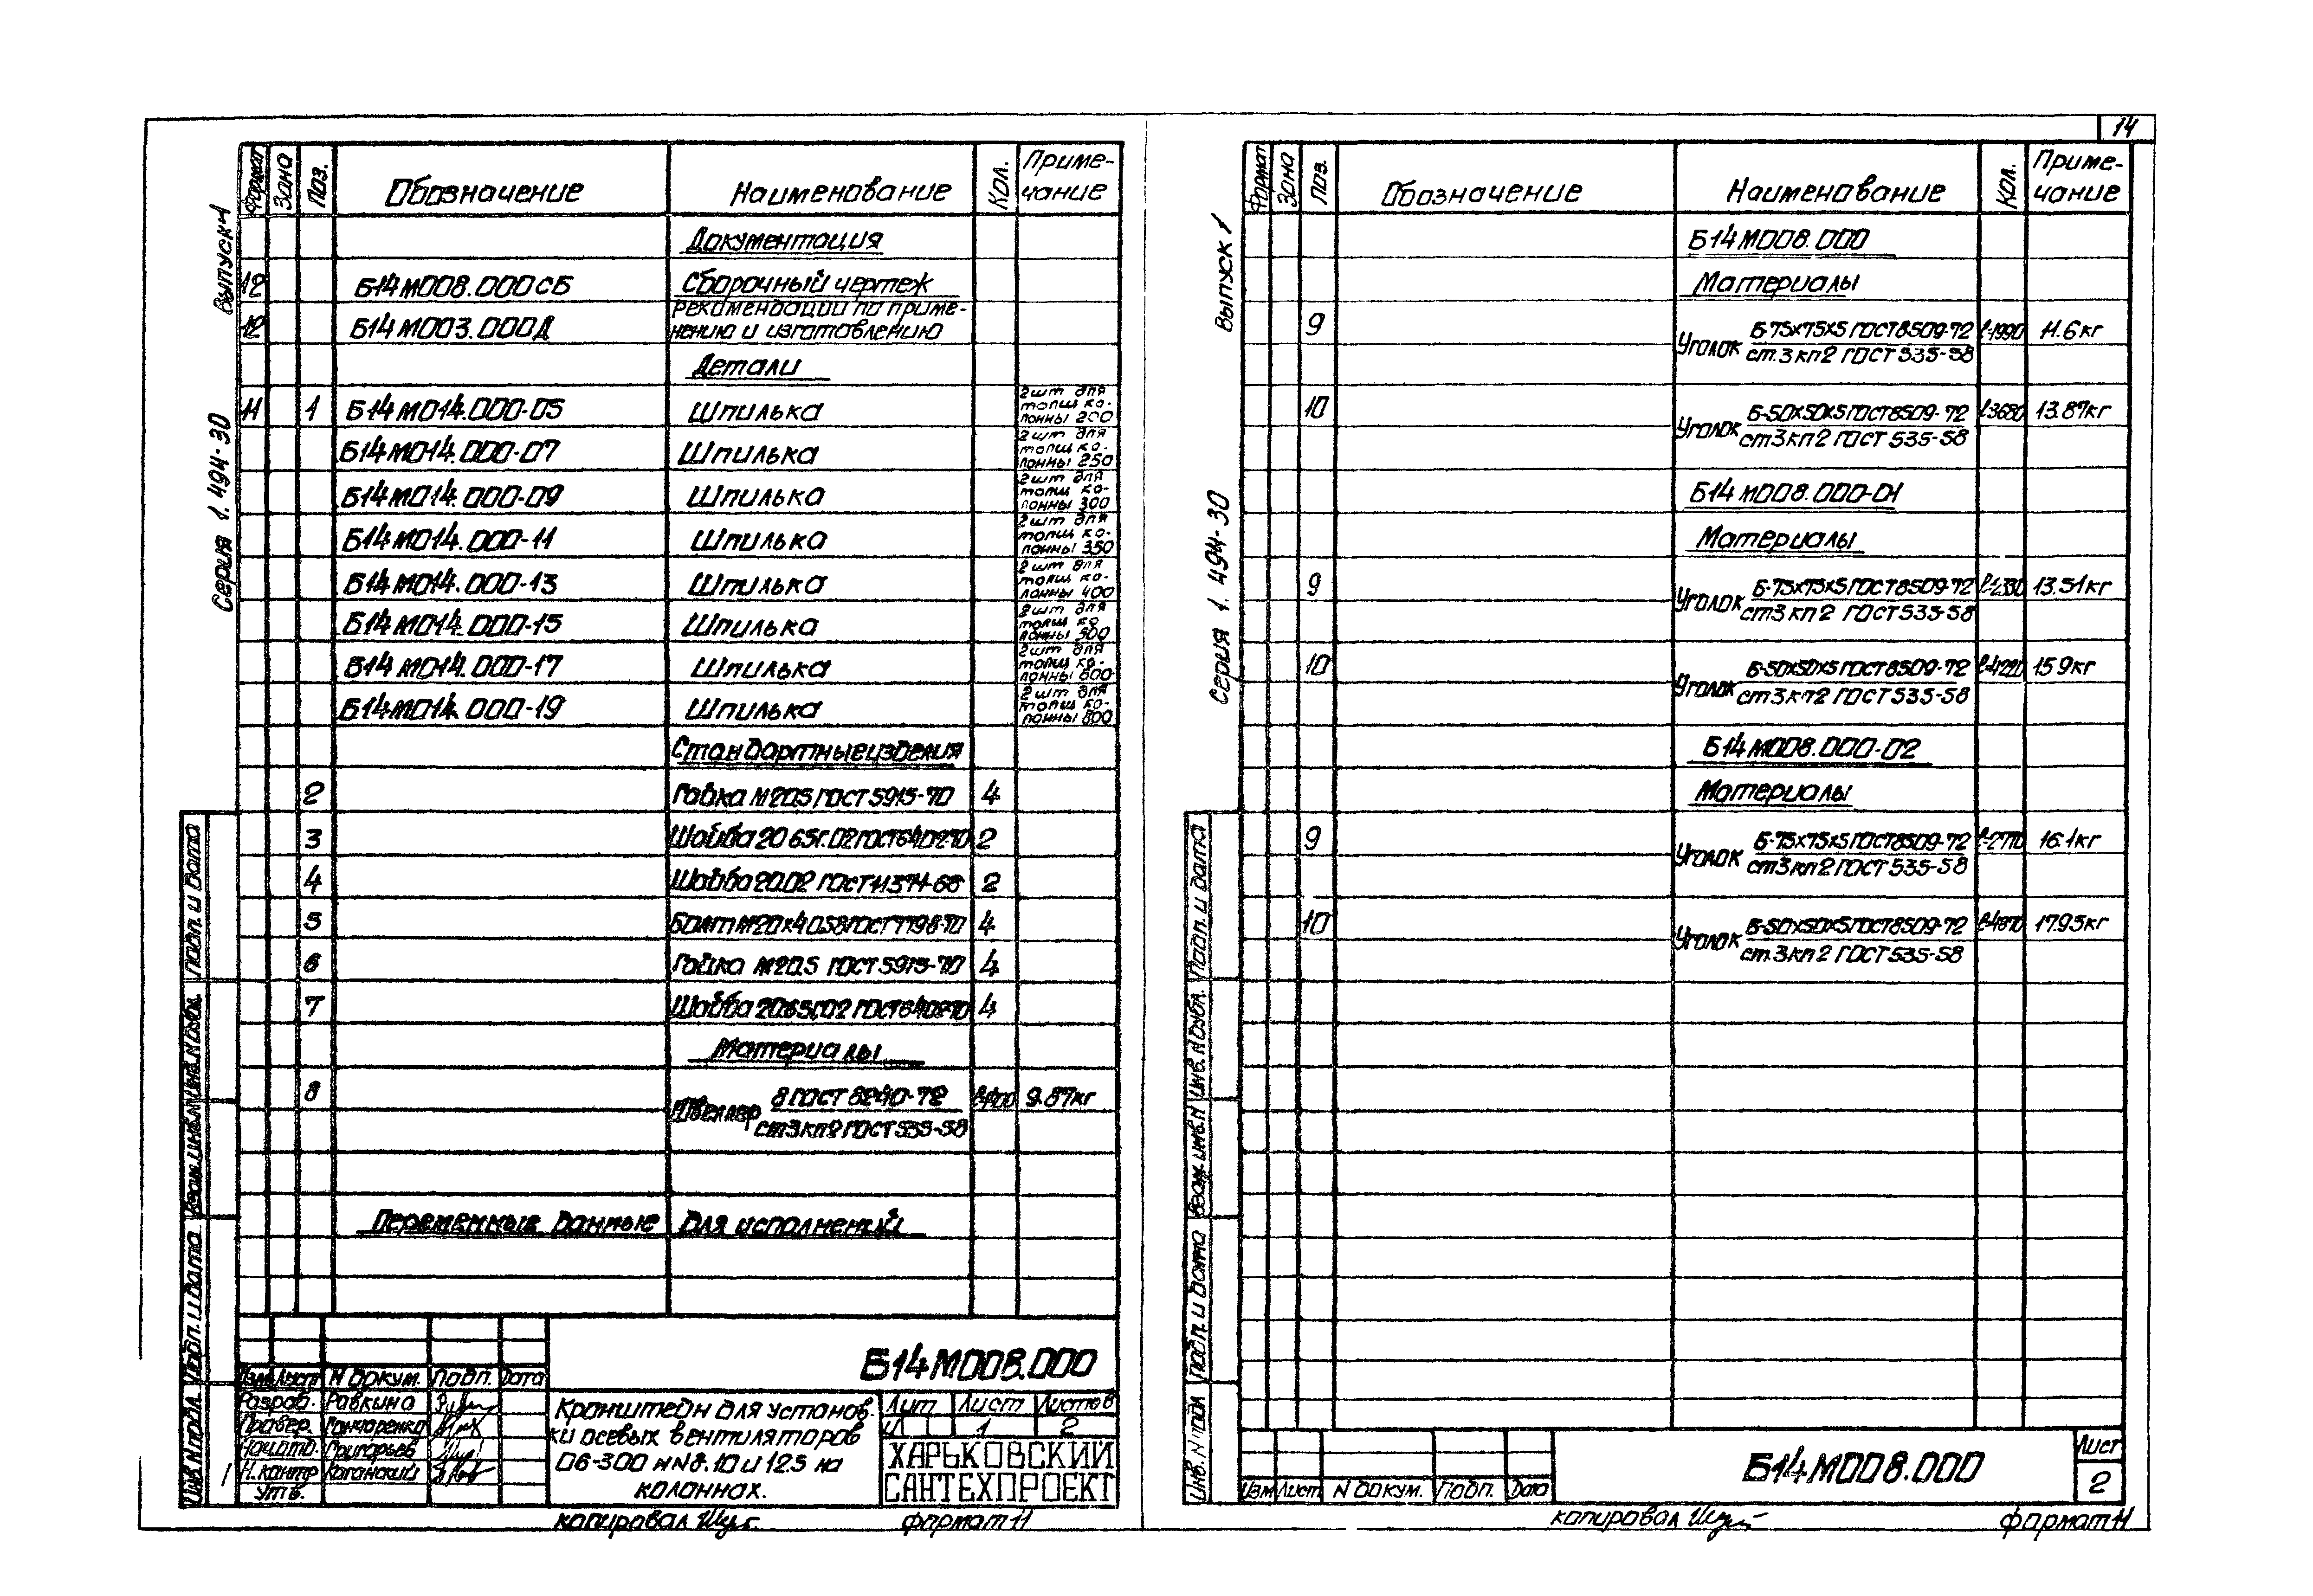 14
Серия 1.494-30 Выпуск 1
Формат Зона Поз. Обозначение Наименование Кол. Примечание
Документация
12 Б14М008.000СБ Сборочный чертеж
12 Б14М003.000Д Рекомендации по приме-
нению и изготовлению
Детали
11 1 Б14М014.000-05 Шпилька 2шт для толщ ко- лонны 200
Б14М014.000-07 Шпилька 2шт для толщ ко- лонны 250
Б14М014.000-09 Шпилька 2шт для толщ ко- лонны 300
Б14М014.000-11 Шпилька 2шт для толщ ко- лонны 350
Б14М014.000-13 Шпилька 2шт для толщ ко- лонны 400
Б14М014.000-15 Шпилька 2шт для толщ ко лонны 500
Б14М014.000-17 Шпилька 2шт для толщ ко- лонны 600
Б14М014.000-19 Шпилька 2шт для толщ ко- лонны 800
Стандартные изделия
2 Гайка М20.5 ГОСТ 5915-70 4
3 Шайба 20 65Г.02 ГОСТ 6402-70 2
4 Шайба 20.02 ГОСТ 11371-68 2
5 Болт М20х40.58 ГОСТ 7798-70 4
6 Гайка М20.5 ГОСТ 5915-70 4
7 Шайба 20.65Г.02 ГОСТ 6402-70 4
Материалы
8 Швеллер 8 ГОСТ 8240-72 9.87кг
ст3кп2 ГОСТ 535-58
Переменные данные для исполнений
Инв. N подл. Подп. и дата Взам. инв. N Инв. N дубл. Подп. и дата
Б14М008.000
Изм Лист N докум. Подп. Дата
Разраб. Равкина
Провер. Гончаренко
Нач.отд. Григорьев
Н.контр Коганский
Утв.
Кронштейн для установ-
ки осевых вентиляторов
06-300 NN8.10 и 12.5 на
колоннах.
Лит Лист Листов
И 1 2
ХАРЬКОВСКИЙ
САНТЕХПРОЕКТ
копировал
формат 11
Серия 1.494-30 Выпуск 1
Формат Зона Поз. Обозначение Наименование Кол. Примечание
Б14М008.000
Материалы
9 Уголок Б-75х75х5 ГОСТ 8509-72 ℓ-1990 11.6кг
ст.3кп2 ГОСТ 535-58
10 Уголок Б-50х50х5 ГОСТ 8509-72 ℓ-3680 13.87кг
ст3кп2 ГОСТ 535-58
Б14М008.000-01
Материалы
9 Уголок Б-75х75х5 ГОСТ 8509-72 ℓ-2330 13.51кг
ст3кп2 ГОСТ 535-58
10 Уголок Б-50х50х5 ГОСТ 8509-72 ℓ-4220 15.9кг
ст3кп2 ГОСТ 535-58
Б14М008.000-02
Материалы
9 Уголок Б-75х75х5 ГОСТ 8509-72 ℓ-2770 16.1кг
ст3кп2 ГОСТ 535-58
10 Уголок Б-50х50х5 ГОСТ 8509-72 17.95кг
ст.3кп2 ГОСТ 535-58
Инв. N подл Подп. и дата Взам. инв. N Инв. N дубл. Подп. и дата
Изм Лист N докум. Подп. Дата
Б14М008.000
Лист
2
копировал
формат 11